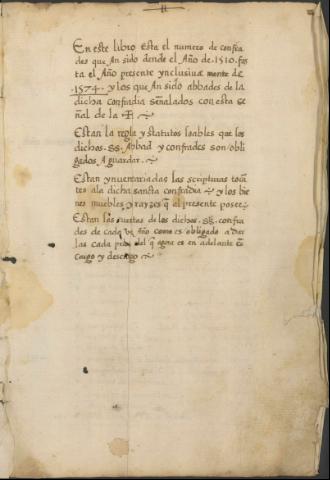 En este libro esta el numero de confra
des que An sido dende el Año de .1510. fas
ta el Año presente ynclusiua mente de
.1574. y los que An sido abbades de la
dicha confradia señalados con esta se
ñal de la ✠
Estan la regla y statutos loables que los
dichos .ss. Abbad y confrades son obli
gados A guardar.
Estan ynventariadas las scripturas tocã
tes ala dicha sancta confradia y los bie
nes muebles y rayzes q̃ al presente posee
Estan las cuentas de los dichos confra
des de cada Año como es obligado a dar
las cada q̃ agora es en adelante
cargo y descargo